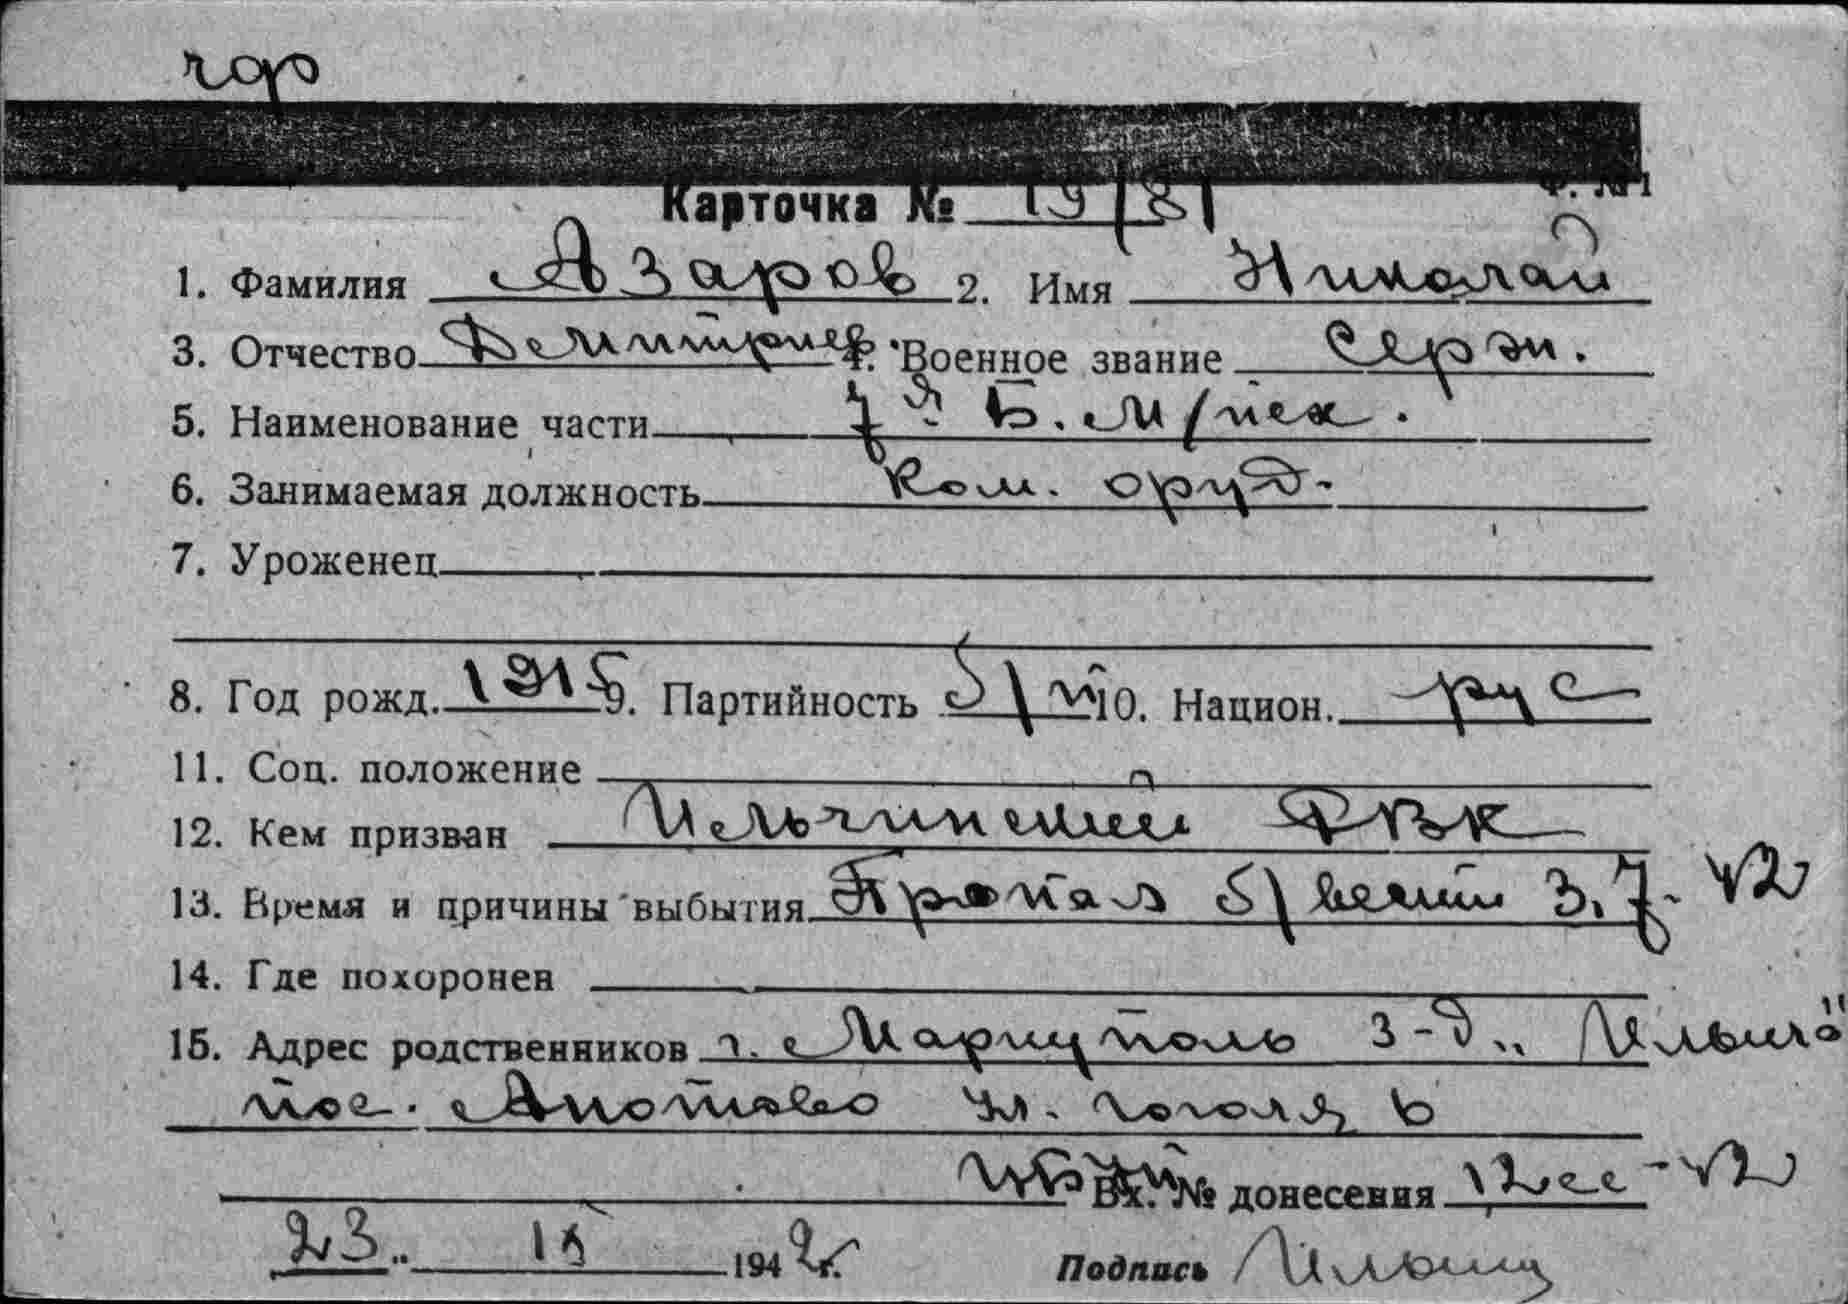 чор
Карточка № 19/81 Ф. № 1
1. Фамилия Азаров 2. Имя Николай
3. Отчество Демитриев. Военное звание Серж.
5. Наименование части 7 Б. м/пех.
6. Занимаемая должность Ком. оруд.
7. Уроженец
8. Год рожд. 1915 9. Партийность б/п 10. Национ. рус
11. Соц. положение
12. Кем призван РВК
13. Время и причины выбытия Пропал б/вести 3.7.42
14. Где похоронен
15. Адрес родственников г. Мариуполь з-д „Ильича"
пос. ул. Гоголя 6
Вх. № донесения 12сс-42
23 " 194 2 г. Подпись